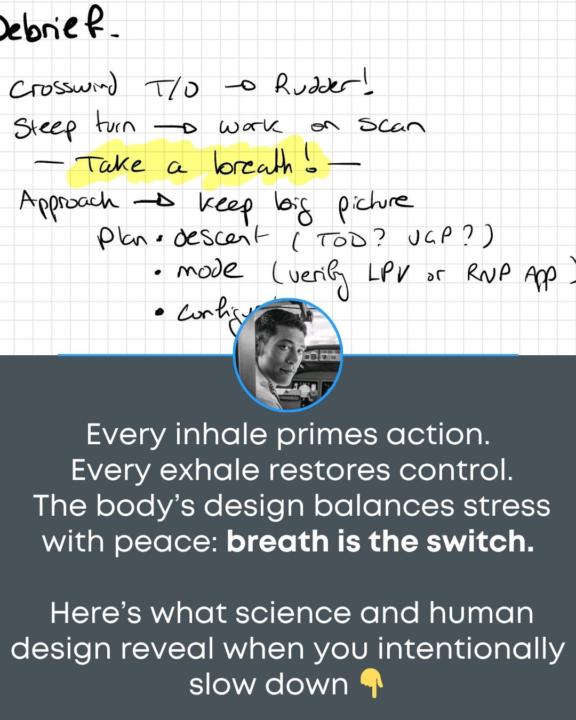 Debrief.
Crosswind T/O → Rudder!
Steep turn → work on scan
— Take a breath! —
Approach → keep big picture
Plan • descent (TOD? VGP?)
• mode (verify LPV or RNP App)
Every inhale primes action.
Every exhale restores control.
The body's design balances stress
with peace: breath is the switch.
Here's what science and human
design reveal when you intentionally
slow down 👇